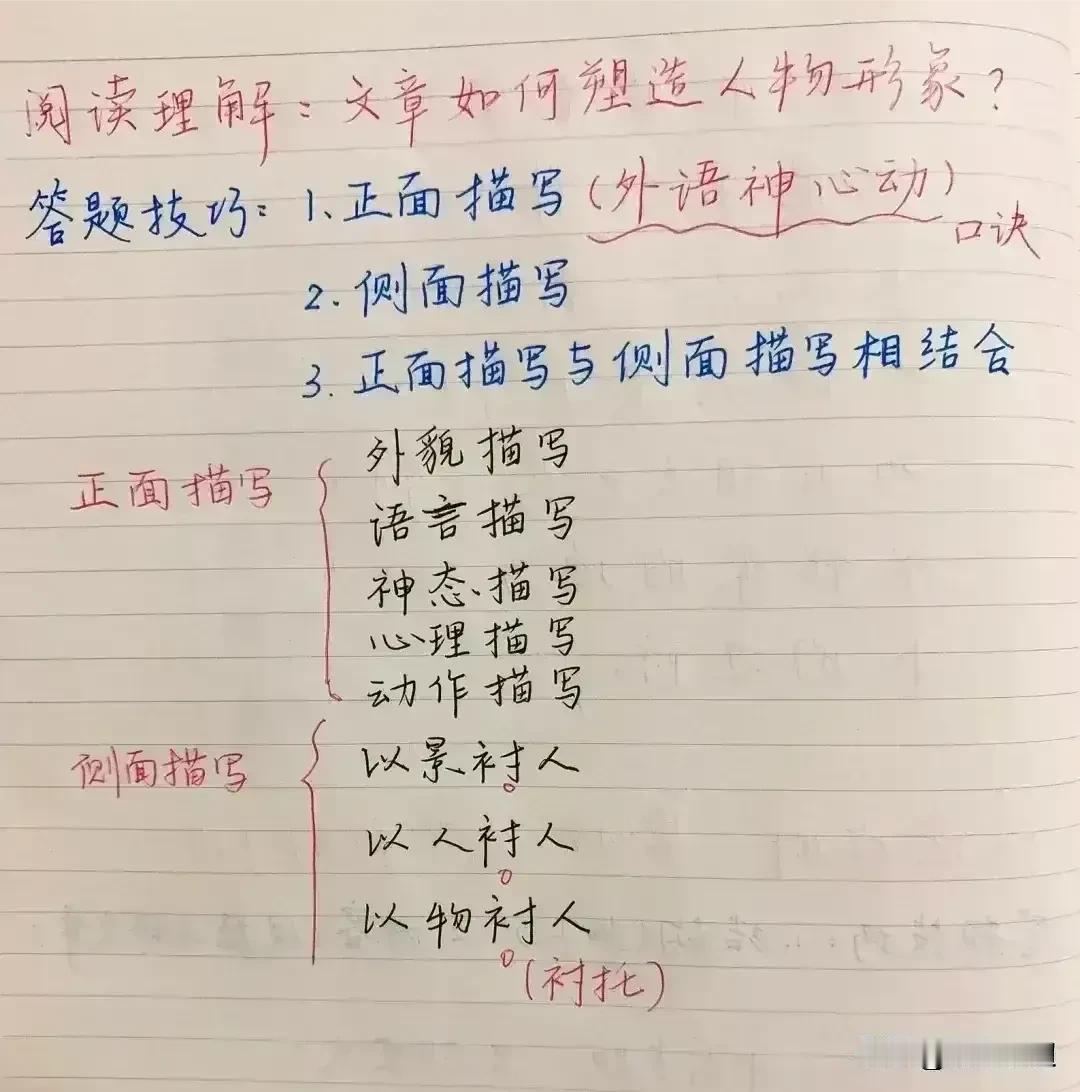 阅读理解：文章如何塑造人物形象？
答题技巧：1.正面描写（外语神心动）
口诀
2.侧面描写
3.正面描写与侧面描写相结合
正面描写
外貌描写
语言描写
神态描写
心理描写
动作描写
侧面描写
以景衬人
以人衬人
以物衬人
（衬托）